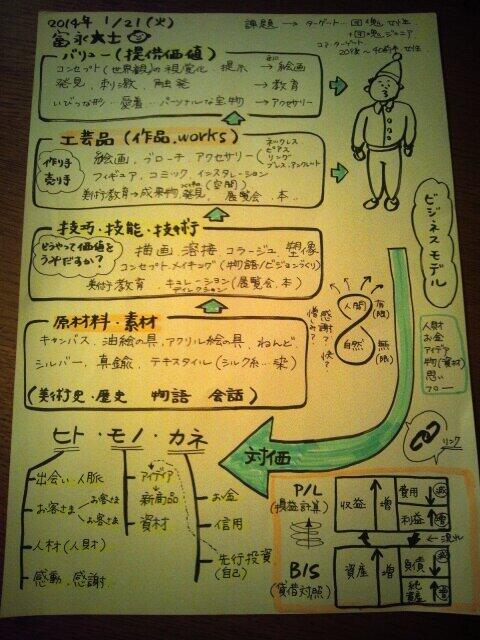 2014年 1/21(火)
富永大士
課題 → ターゲット
コアターゲット
20後〜40前半 女性
バリュー(提供価値)
コンセプト(世界観)の視覚化 提示 → 絵画
発見、刺激、触発 → 教育
いびつな形…愛着…パーソナルな宝物 → アクセサリー
工芸品(作品.works)
作り手
売り手
絵画、ブローチ、アクセサリー(
ネックレス
ピアス
リング
ブレス、アンクレット
フィギュア、コミック、インスタレーション
(空間)
美術教育→成果物、発見、展覧会、本..
技巧・技能・技術
どうやって価値を
うみだすか?
描画 溶接 コラージュ 塑像
コンセプトメイキング(物語/ビジョンづくり)
美術教育 キュレーション
ディレクション
(展覧会、本)
原材料・素材
キャンバス、油絵の具、アクリル絵の具、ねんど
シルバー、真鍮、テキスタイル(シルク糸…染)
(美術史・歴史 物語 会話)
ビジネスモデル
人間
有限
自然
無限
感謝? 快?
憎しみ?
人財
お金
アイデア
物(資材)
思い
フロー
リンク
対価
ヒト・モノ・カネ
出会い・人脈
お客さま
お客さま
お客さま
人材(人財)
感動・感謝.
アイデア
新商品
資材
お金
信用
先行投資
(自己)
P/L
(損益計算)
収益 増
費用 減
利益 増
流れ
B/S
(貸借対照)
資産 増
負債 減
純資産 増